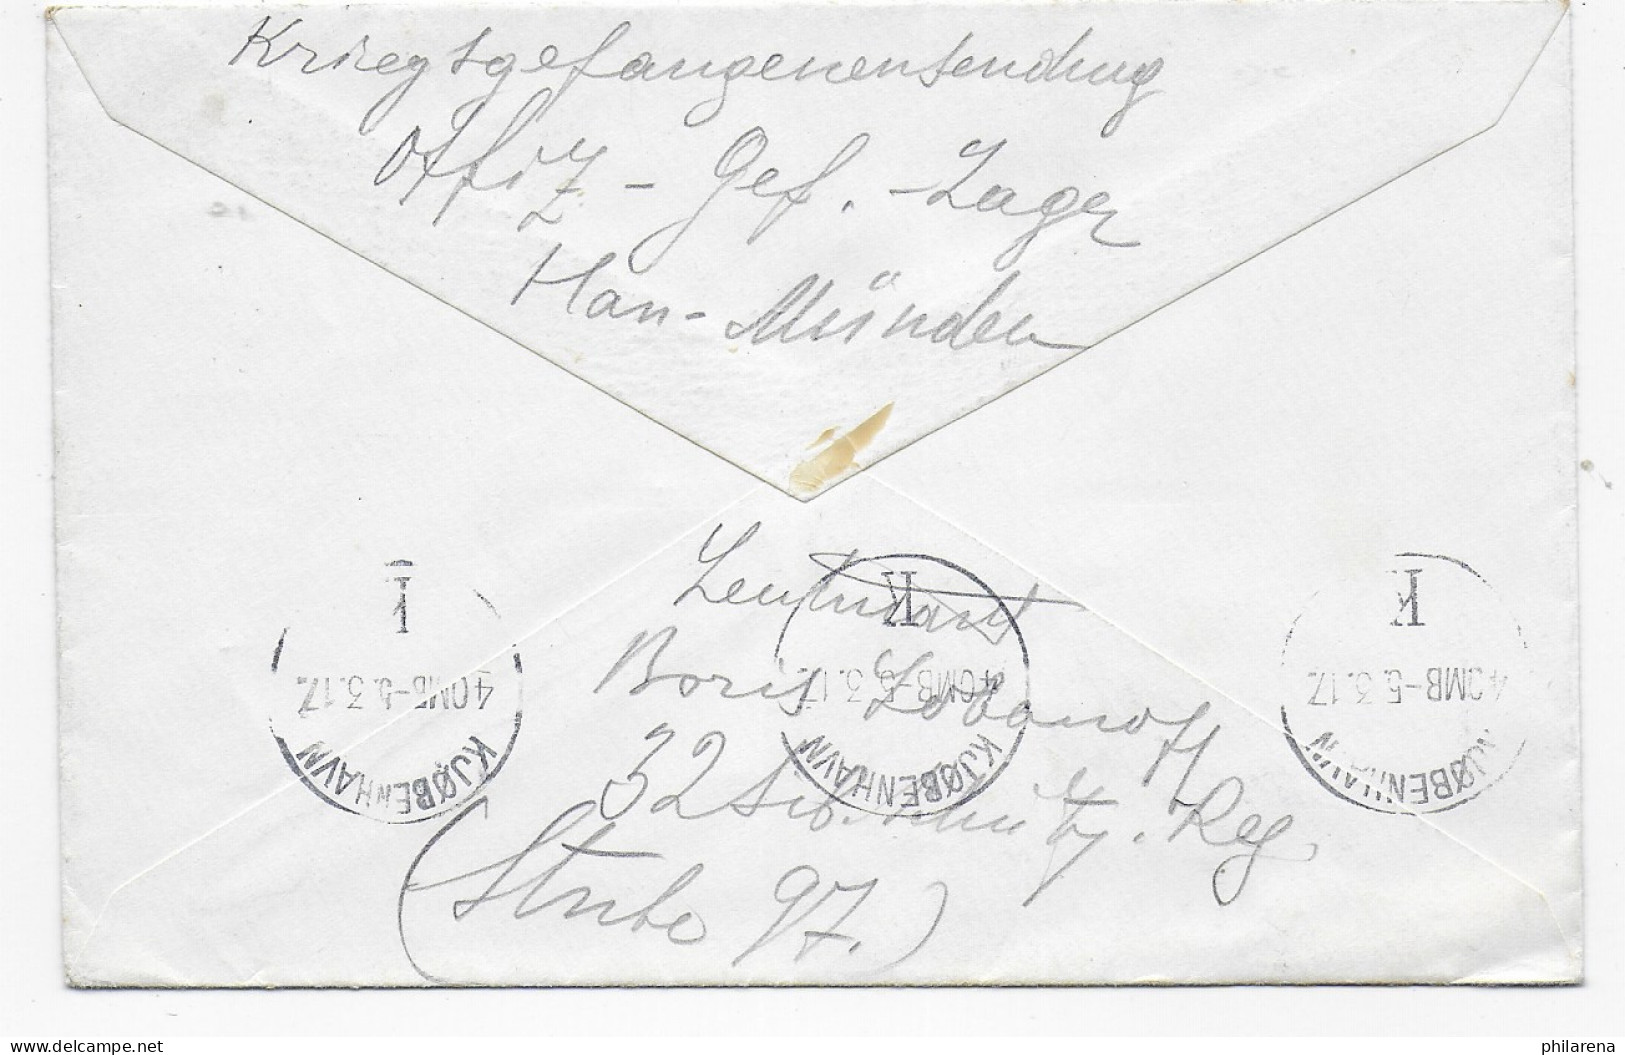 Kriegsgefangenensendung
Offiz - Gef. - Lager
Han - Münden
Leutnant
Boris Lobanoff
32 Sib. Schütz. Reg
(Stube 97.)
KJØBENHAVN
4 OMB - 5.3.17.
K
KJØBENHAVN
4 OMB - 5.3.17.
K
KJØBENHAVN
4 OMB - 5.3.17.
K
www.delcampe.net
philarena